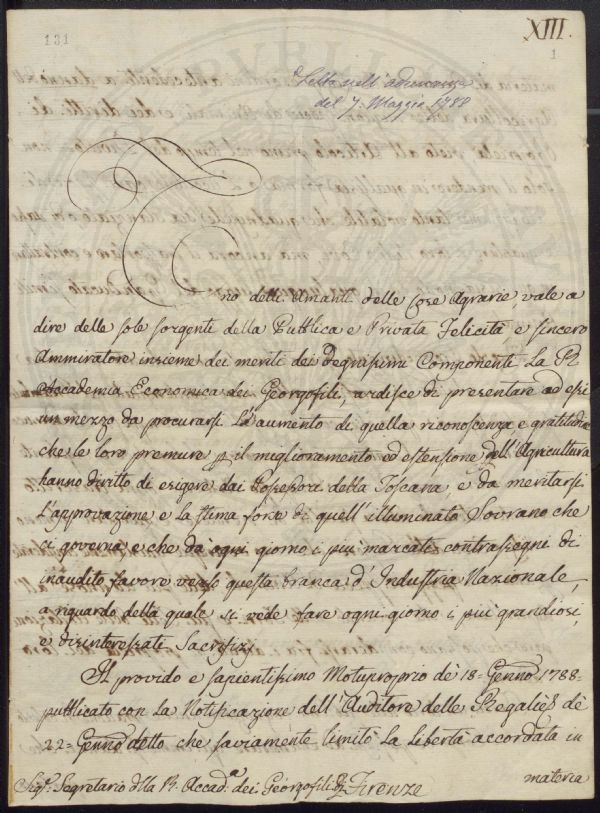 131
XIII.
1
Letta nell'adunanza
del 7. Maggio 1788
Uno delli Amanti delle Cose Agrarie, vale a
dire delle sole sorgenti della Pubblica e Privata Felicità e sincero
Ammiratore insieme dei meriti dei Degnissimi Componenti La R.
Accademia Economica dei Georgofili, ardisce di presentare ad essi
un mezzo da procurarsi L'aumento di quella riconoscenza e gratitudine
che le loro premure p il miglioramento ed estensione dell'Agricultura
hanno diritto di esigere dai Possessori della Toscana, e da meritarsi
L'approvazione e la stima forse di quell'illuminato Sovrano che
ci governa e che dà ogni giorno i più marcati contrassegni di
inaudito favore verso questa branca d'Industria Nazionale,
a riguardo della quale si vede fare ogni giorno i più grandiosi,
e disinteressati Sacrifizj
Il provido e sapientissimo Motuproprio de' 18= Genno 1788=
pubblicato con la Notificazione dell'Auditore delle Regalie de'
22= Genno detto che saviamente limitò La Libertà accordata in
materia
Sigr. Segretario dlla R. Accad.a dei Georgofili di Firenze